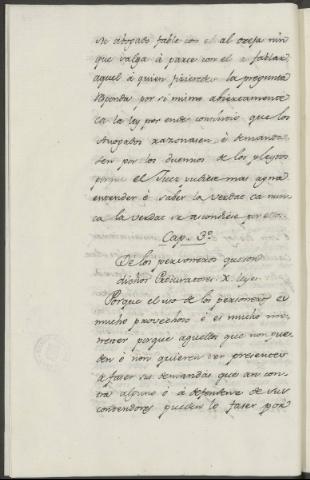 su abogado fable con el al oreja nin
que salga á parte con el a fablar
aquel á quien ficieren la pregunta
responda por si mismo abiertamente
ca la ley por ende consintió que los
Abogados razonasen é demanda
sen por los duennos de los pleytos
porque el Juez pudiese mas ayna
entender é saber la verdat ca nun
ca la verdat se ascondiese por eso.
Cap. 3.º
De los personeros que son
dichos Procuratores X. leyes.
Porque el uso de los personeros es
mucho provechoso é es mucho me-
nester porque aquellos que non pue
den é non quieren ser presentes
á faser sus demandas que an con
tra alguno é á defenderse de sus
contendores pueden lo faser por